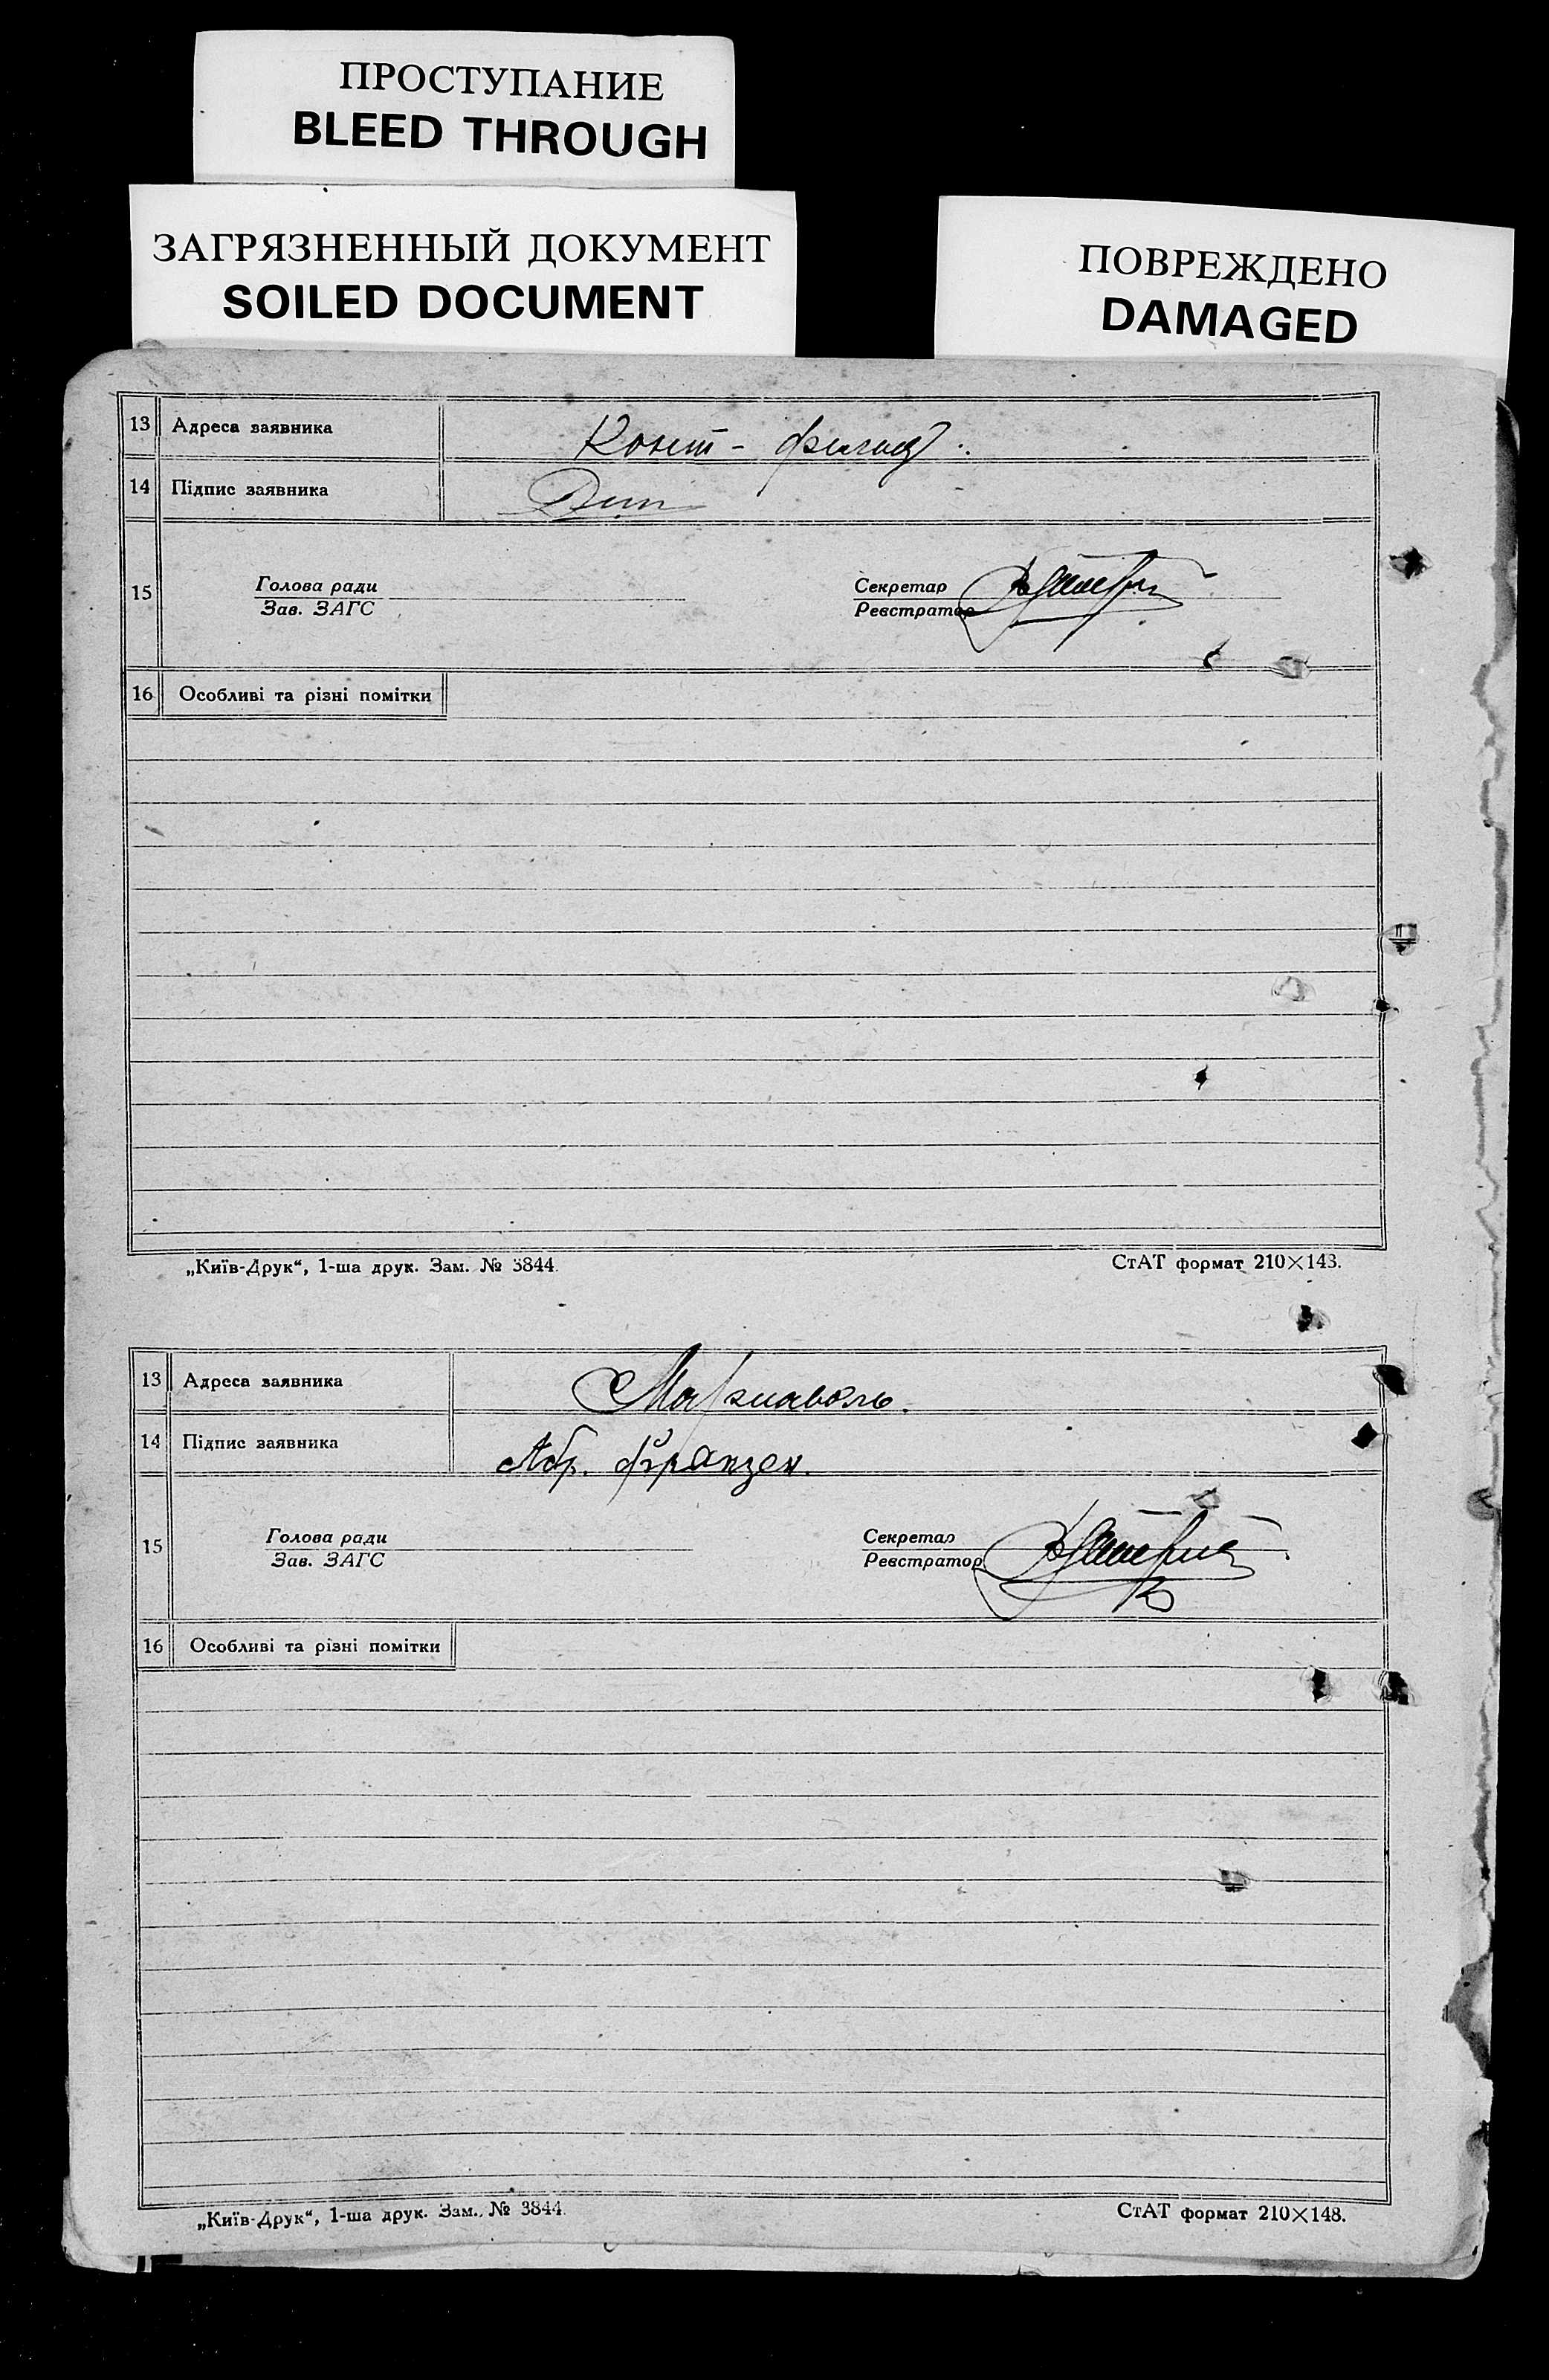 ПРОСТУПАНИЕ
BLEED THROUGH
ЗАГРЯЗНЕННЫЙ ДОКУМЕНТ
SOILED DOCUMENT
ПОВРЕЖДЕНО
DAMAGED
13 Адреса заявника
14 Підпис заявника
15 Голова ради Секретар
Зав. ЗАГС Реєстратор
16 Особливі та різні помітки
„Київ-Друк“, 1-ша друк. Зам. № 3844. СтАТ формат 210×143.
13 Адреса заявника
14 Підпис заявника Абр. Францен.
15 Голова ради Секретар
Зав. ЗАГС Реєстратор
16 Особливі та різні помітки
„Київ-Друк“, 1-ша друк. Зам. № 3844. СтАТ формат 210×148.